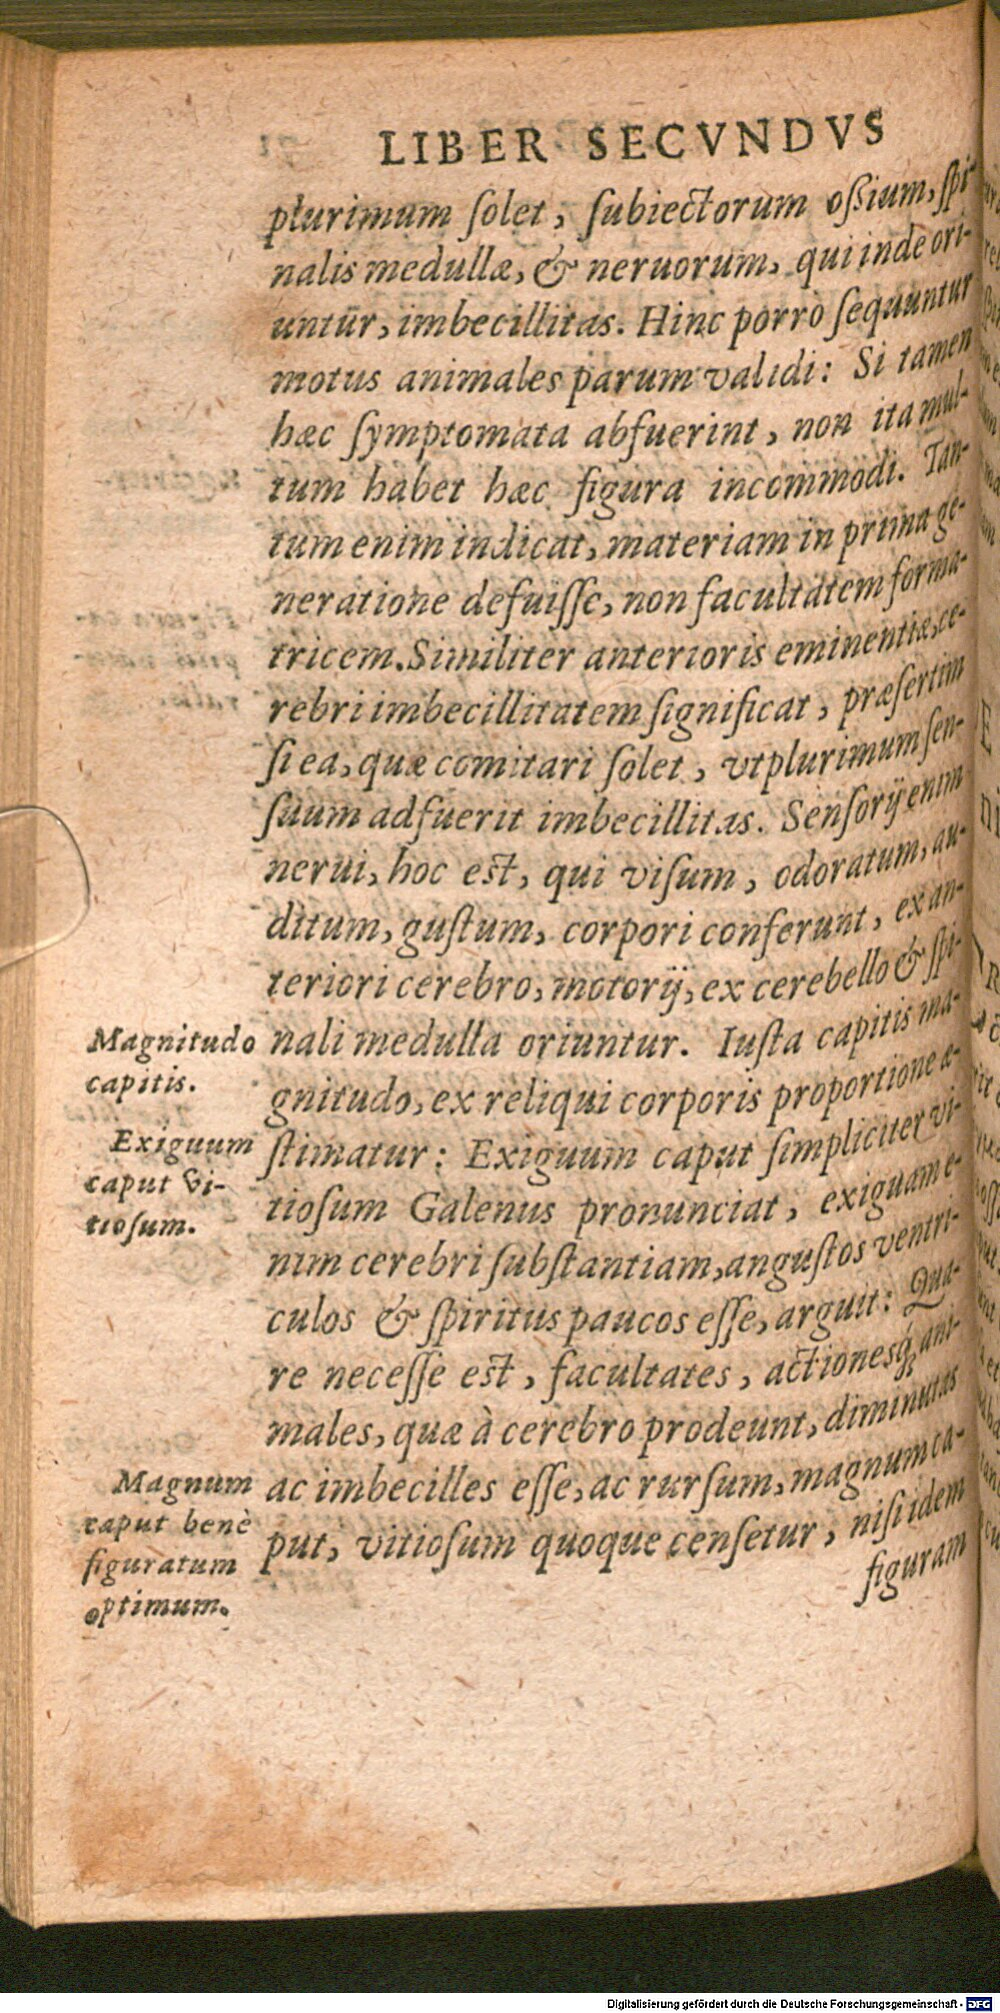 LIBER SECVNDVS
plurimum ſolet, ſubiectorum oßium, ſpi-
nalis medullæ, & neruorum, qui inde ori-
untur, imbecillitas. Hinc porrò ſequuntur
motus animales parum validi: Si tamen
hæc ſymptomata abfuerint, non ita mul-
tum habet hæc figura incommodi. Tan-
tum enim indicat, materiam in prima ge-
neratione defuiſſe, non facultatem forma-
tricem. Similiter anterioris eminentiæ, ce-
rebri imbecillitatem ſignificat, præſertim
ſi ea, quæ comitari ſolet, vt plurimum ſen-
ſuum adfuerit imbecillitas. Senſorij enim
nerui, hoc est, qui viſum, odoratum, au-
ditum, guſtum, corpori conferunt, ex an-
teriori cerebro, motorij, ex cerebello & ſpi-
nali medulla oriuntur. Iuſta capitis ma-
gnitudo, ex reliqui corporis proportione æ-
ſtimatur: Exiguum caput ſimpliciter vi-
tioſum Galenus pronunciat, exiguam e-
nim cerebri ſubſtantiam, anguſtos ventri-
culos & ſpiritus paucos eſſe, arguit: Qua-
re neceſſe est, facultates, actionesq́ ani-
males, quæ à cerebro prodeunt, diminutas
ac imbecilles eſſe, ac rurſum, magnum ca-
put, vitioſum quoque cenſetur, niſi idem
figuram
Magnitudo
capitis.
Exiguum
caput vi-
tioſum.
Magnum
caput benè
figuratum
optimum.
Digitalisierung gefördert durch die Deutsche Forschungsgemeinschaft - DFG